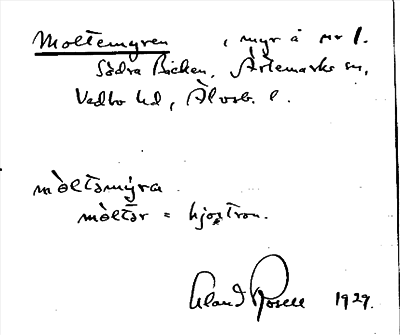 Moltemyren, myr å nr 1.
Södra Bicken, Ärtemarks sn,
Vedbo hd, Älvsb. l.
mòltəmýra
mòltər = hjortron.
Claud Rosell 1929.